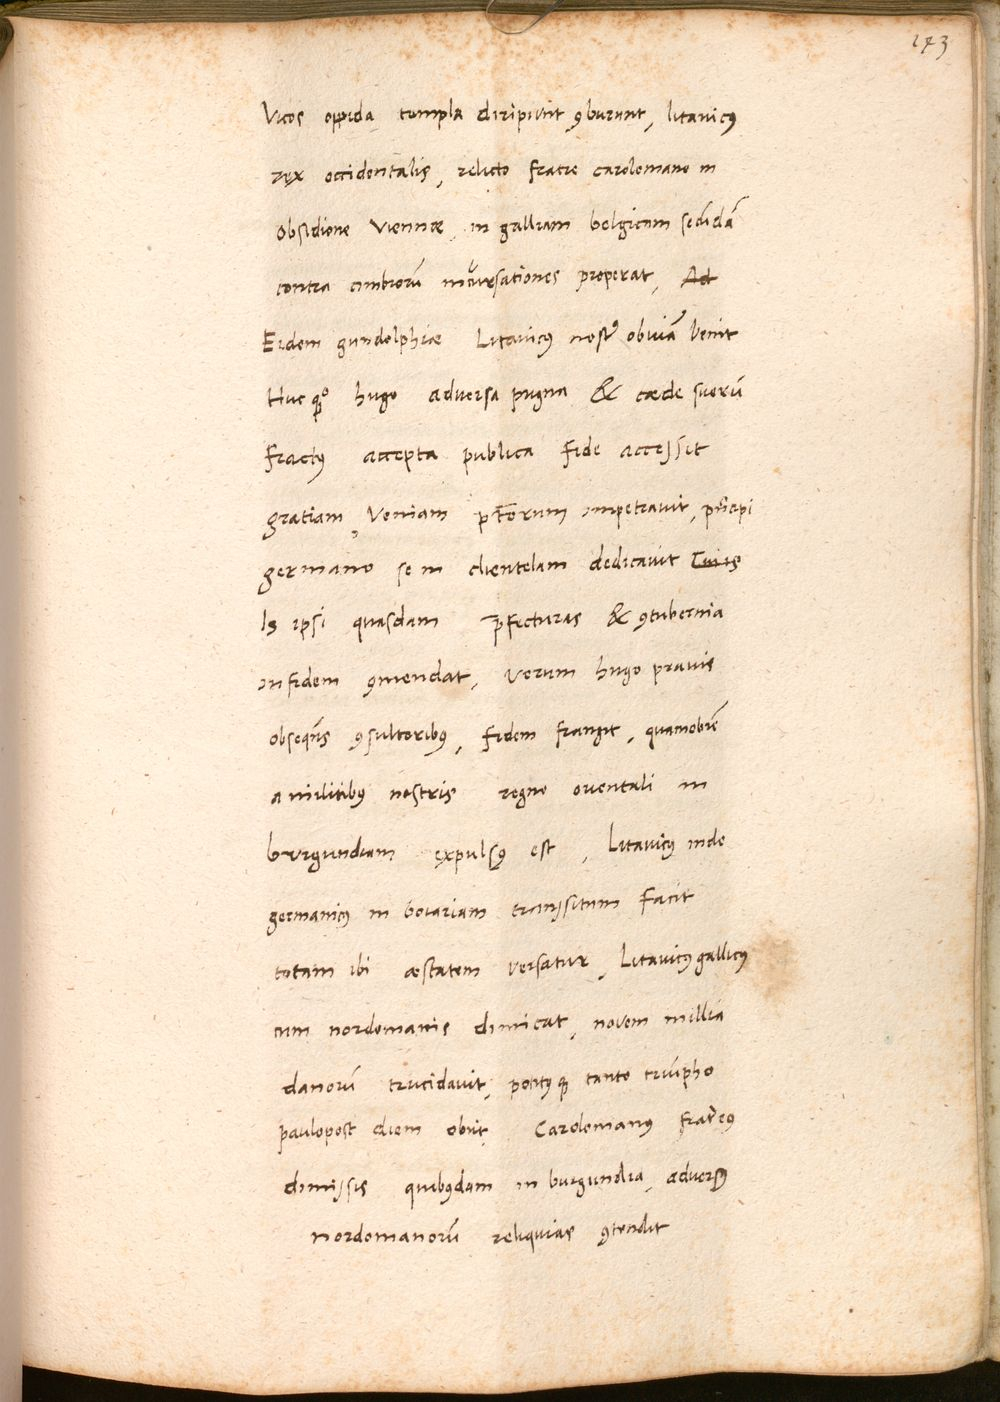 173
Vicos oppida templa diripiunt ꝯburunt, litauicꝰ
rex occidentalis, relicto fratre carolomano in
obsidione Viennæ, in galliam belgicam secūdā
contra cimbrorū incursationes properat, Ad
Eidem gundolphiæ Litauicꝰ nostꝰ obuiā venit
Huc qꝫ hugo adversa pugna & cæde suorū
fractꝰ accepta publica fide accessit
gratiam, Veniam p̄toʀum impetrauit, pn̄cipi
germano se in clientelam dedicauit Cuiꝰ
Is ipsi quasdam p̄fecturas & ꝯtubernia
in fidem ꝯmendat, Verum hugo prauis
obseqn̄s ꝯsultoribꝰ, fidem frangit, quamobrē
a militibꝰ nostris regno orientali in
burgundiam expulsꝰ est, Litauicꝰ inde
germanicꝰ in boiariam transitum facit
totam ibi æstatem versatur, Litauicꝰ gallicꝰ
cum nordomanis dimicat, novem millia
danorū trucidauit, potitꝰqꝫ tanto triūpho
paulopost diem obiit, Carolomanꝰ frater eiꝰ
dimissis quibꝰdam in burgundia, adversꝰ
nordomanorū reliquias ꝯtendit